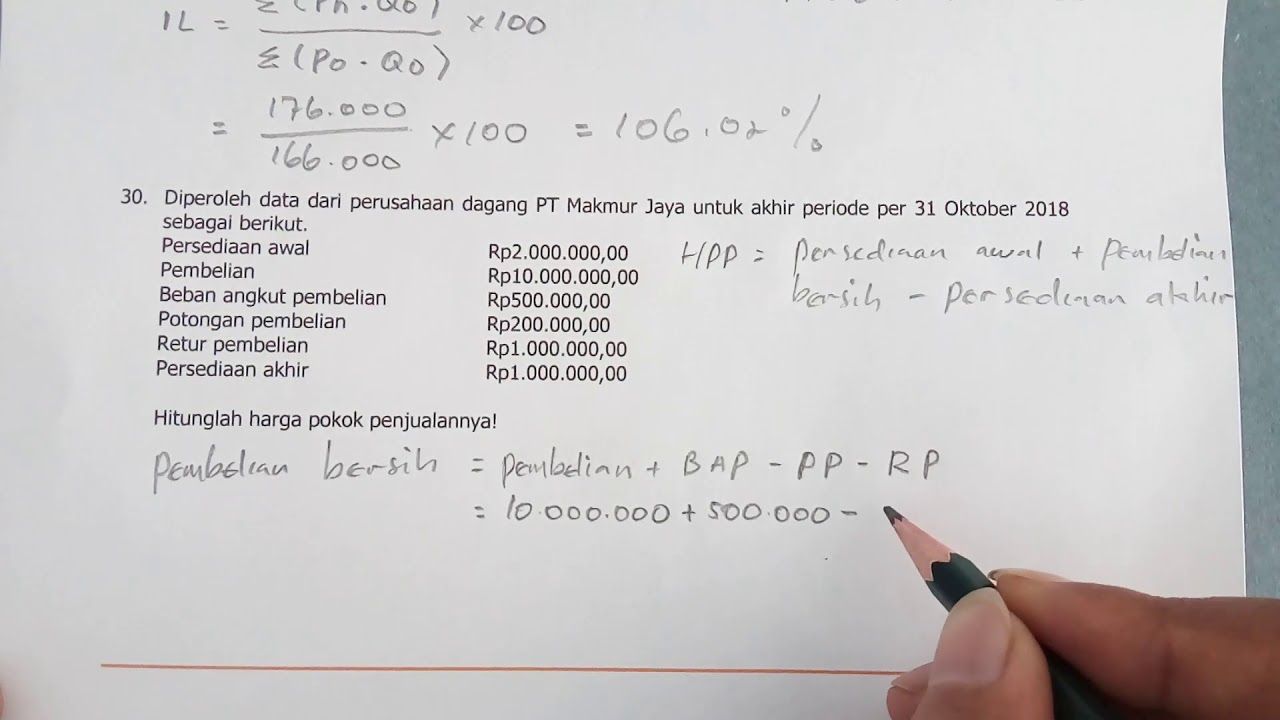 IL = Σ(Pn . Q0) × 100
Σ(Po - Q0)
= 176.000 × 100 = 106.02 %
166.000
30. Diperoleh data dari perusahaan dagang PT Makmur Jaya untuk akhir periode per 31 Oktober 2018
sebagai berikut.
Persediaan awal Rp2.000.000,00
Pembelian Rp10.000.000,00
Beban angkut pembelian Rp500.000,00
Potongan pembelian Rp200.000,00
Retur pembelian Rp1.000.000,00
Persediaan akhir Rp1.000.000,00
HPP = persediaan awal + pembelian
bersih - persediaan akhir
Hitunglah harga pokok penjualannya!
pembelian bersih = pembelian + BAP - PP - RP
= 10.000.000 + 500.000 -